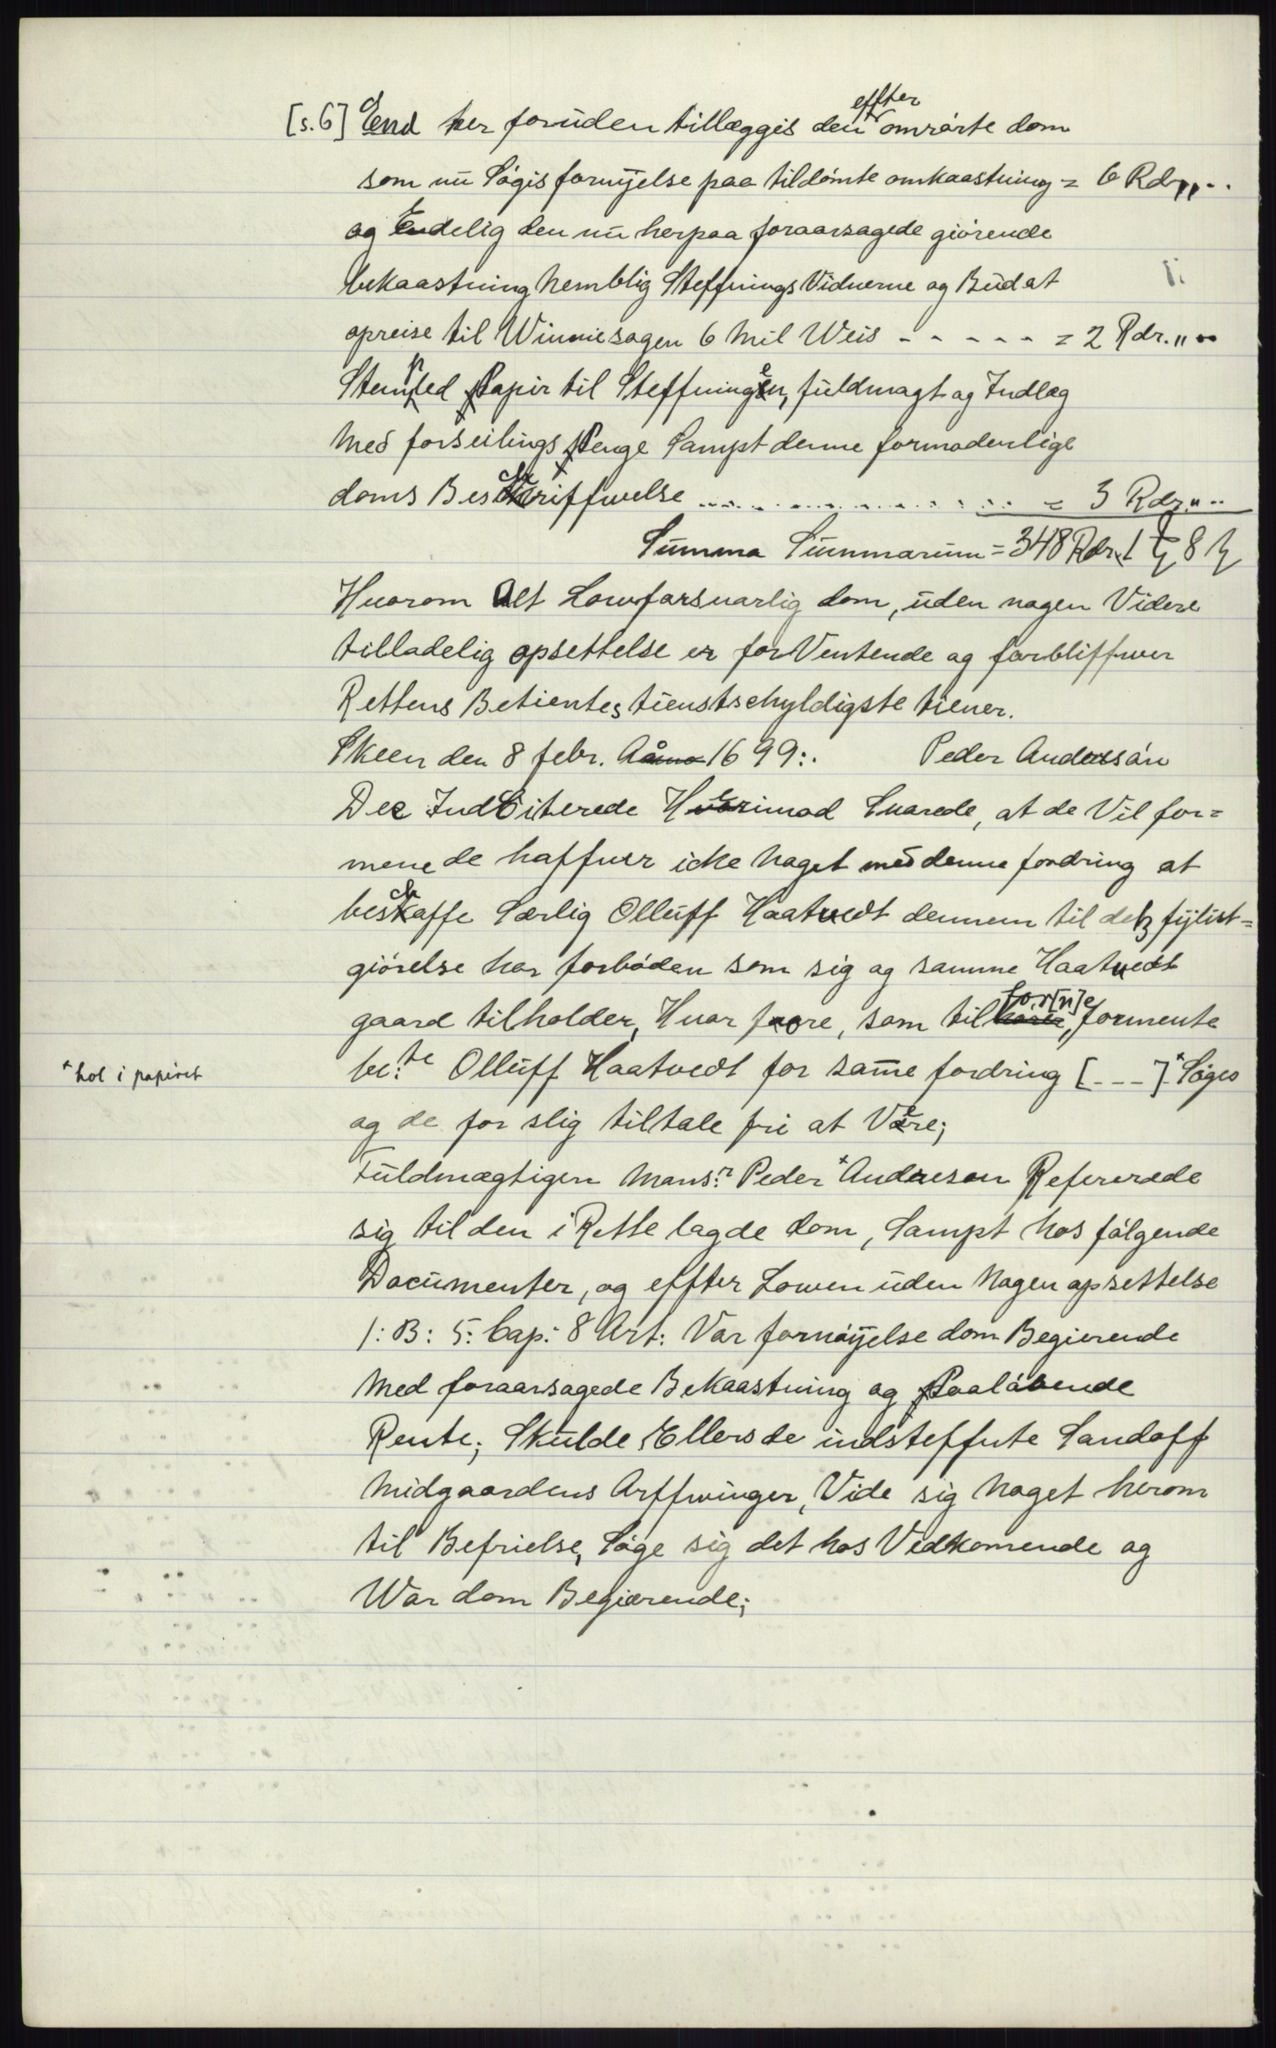 [s.6] End her foruden tillæggis den effter omrørte dom
som nu Søgis fornÿelse paa tildømte omkaastning = 6 Rdr,, ..
og Endelig den nu herpaa foraarsagede giørende
bekaastning Nemblig Steffnings Vidnerne og Bud at
opreise til Winnie sogen 6 Mil Weis - - - - - = 2 Rdr. ,, ..
Stemped Papir til Steffningen, fuldmagt og Indlæg
Med forseilings Penge Sampt denne formodenlige
doms Beschriffwelse ................ = 3 Rdr. ,, ..
Summa Summarum = 348 Rdr. 1 8
Huorom Alt Lowforsuarlig dom, uden nogen Videre
tilladelig opsettelse er for Ventende og forbliffwer
Rettens Betientes tienstschyldigste tiener.
Skeen den 8 febr. A° 1699:. Peder Anderssøn
De Ind Citerede Herimod Suarede, at de Vil for=
mene de haffuer icke Noget med denne fordring at
beschaffe Særlig Olluff Haatuedt dennem til detz fÿlist=
giørelse har forbøden som sig og samme Haatuedt
gaard tilholder, Huor fore, som tilforn[n]e, formente
be:te Olluff Haatvedt for same fordring [---]* Søges
og de for slig tiltale fri at Være;
*hol i papiret
Fuldmægtigen Mons:r Peder Andersen Refererede
sig til den i Rette lagde dom, Sampt hos følgende
Documenter, og effter Lowen uden Nogen opsettelse
1: B: 5: Cap: 8 Art: Var fornøÿelse dom Begierende
Med foraarsagede Bekaastning og Paaløbende
Rente; Skulde Ellers de indsteffnte Sandoff
Midgaardens Arffwinger, Vide sig Noget herom
til Befrielse, Søge sig det hos Vedkomende og
War dom Begiærende;